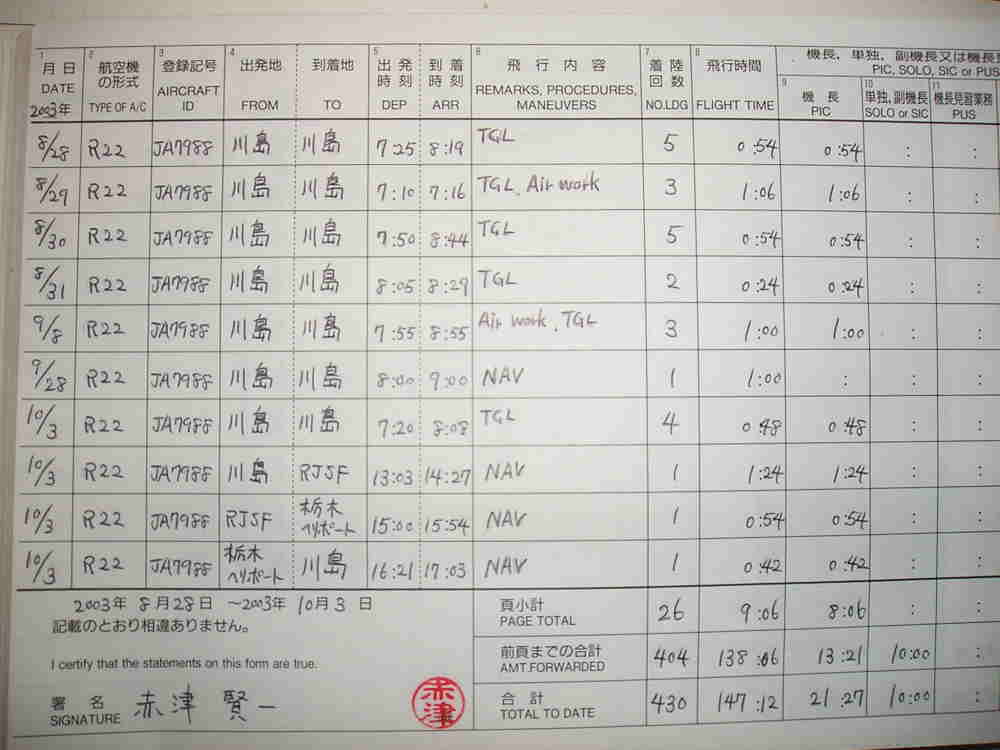 機長, 単独, 副機長又は機長
PIC, SOLO, SIC or PUS
1 月日 DATE 2003年 2 航空機の形式 TYPE OF A/C 3 登録記号 AIRCRAFT ID 4 出発地 FROM 到着地 TO 5 出発時刻 DEP 到着時刻 ARR 6 飛行内容 REMARKS, PROCEDURES, MANEUVERS 7 着陸回数 NO.LDG 8 飛行時間 FLIGHT TIME 9 機長 PIC 10 単独, 副機長 SOLO or SIC 11 機長見習業務 PUS
8/28 R22 JA7988 川島 川島 7:25 8:19 TGL 5 0:54 0:54 : :
8/29 R22 JA7988 川島 川島 7:10 7:16 TGL, Air work 3 1:06 1:06 : :
8/30 R22 JA7988 川島 川島 7:50 8:44 TGL 5 0:54 0:54 : :
8/31 R22 JA7988 川島 川島 8:05 8:29 TGL 2 0:24 0:24 : :
9/8 R22 JA7988 川島 川島 7:55 8:55 Air work, TGL 3 1:00 1:00 : :
9/28 R22 JA7988 川島 川島 8:00 9:00 NAV 1 1:00 : : :
10/3 R22 JA7988 川島 川島 7:20 8:08 TGL 4 0:48 0:48 : :
10/3 R22 JA7988 川島 RJSF 13:03 14:27 NAV 1 1:24 1:24 : :
10/3 R22 JA7988 RJSF 栃木ヘリポート 15:00 15:54 NAV 1 0:54 0:54 : :
10/3 R22 JA7988 栃木ヘリポート 川島 16:21 17:03 NAV 1 0:42 0:42 : :
2003年 8月28日 ~2003年 10月3日
記載のとおり相違ありません。
I certify that the statements on this form are true.
署名 SIGNATURE 赤津 賢一
赤津
頁小計 PAGE TOTAL 26 9:06 8:06 : :
前頁までの合計 AMT.FORWARDED 404 138:06 13:21 10:00 :
合計 TOTAL TO DATE 430 147:12 21:27 10:00 :